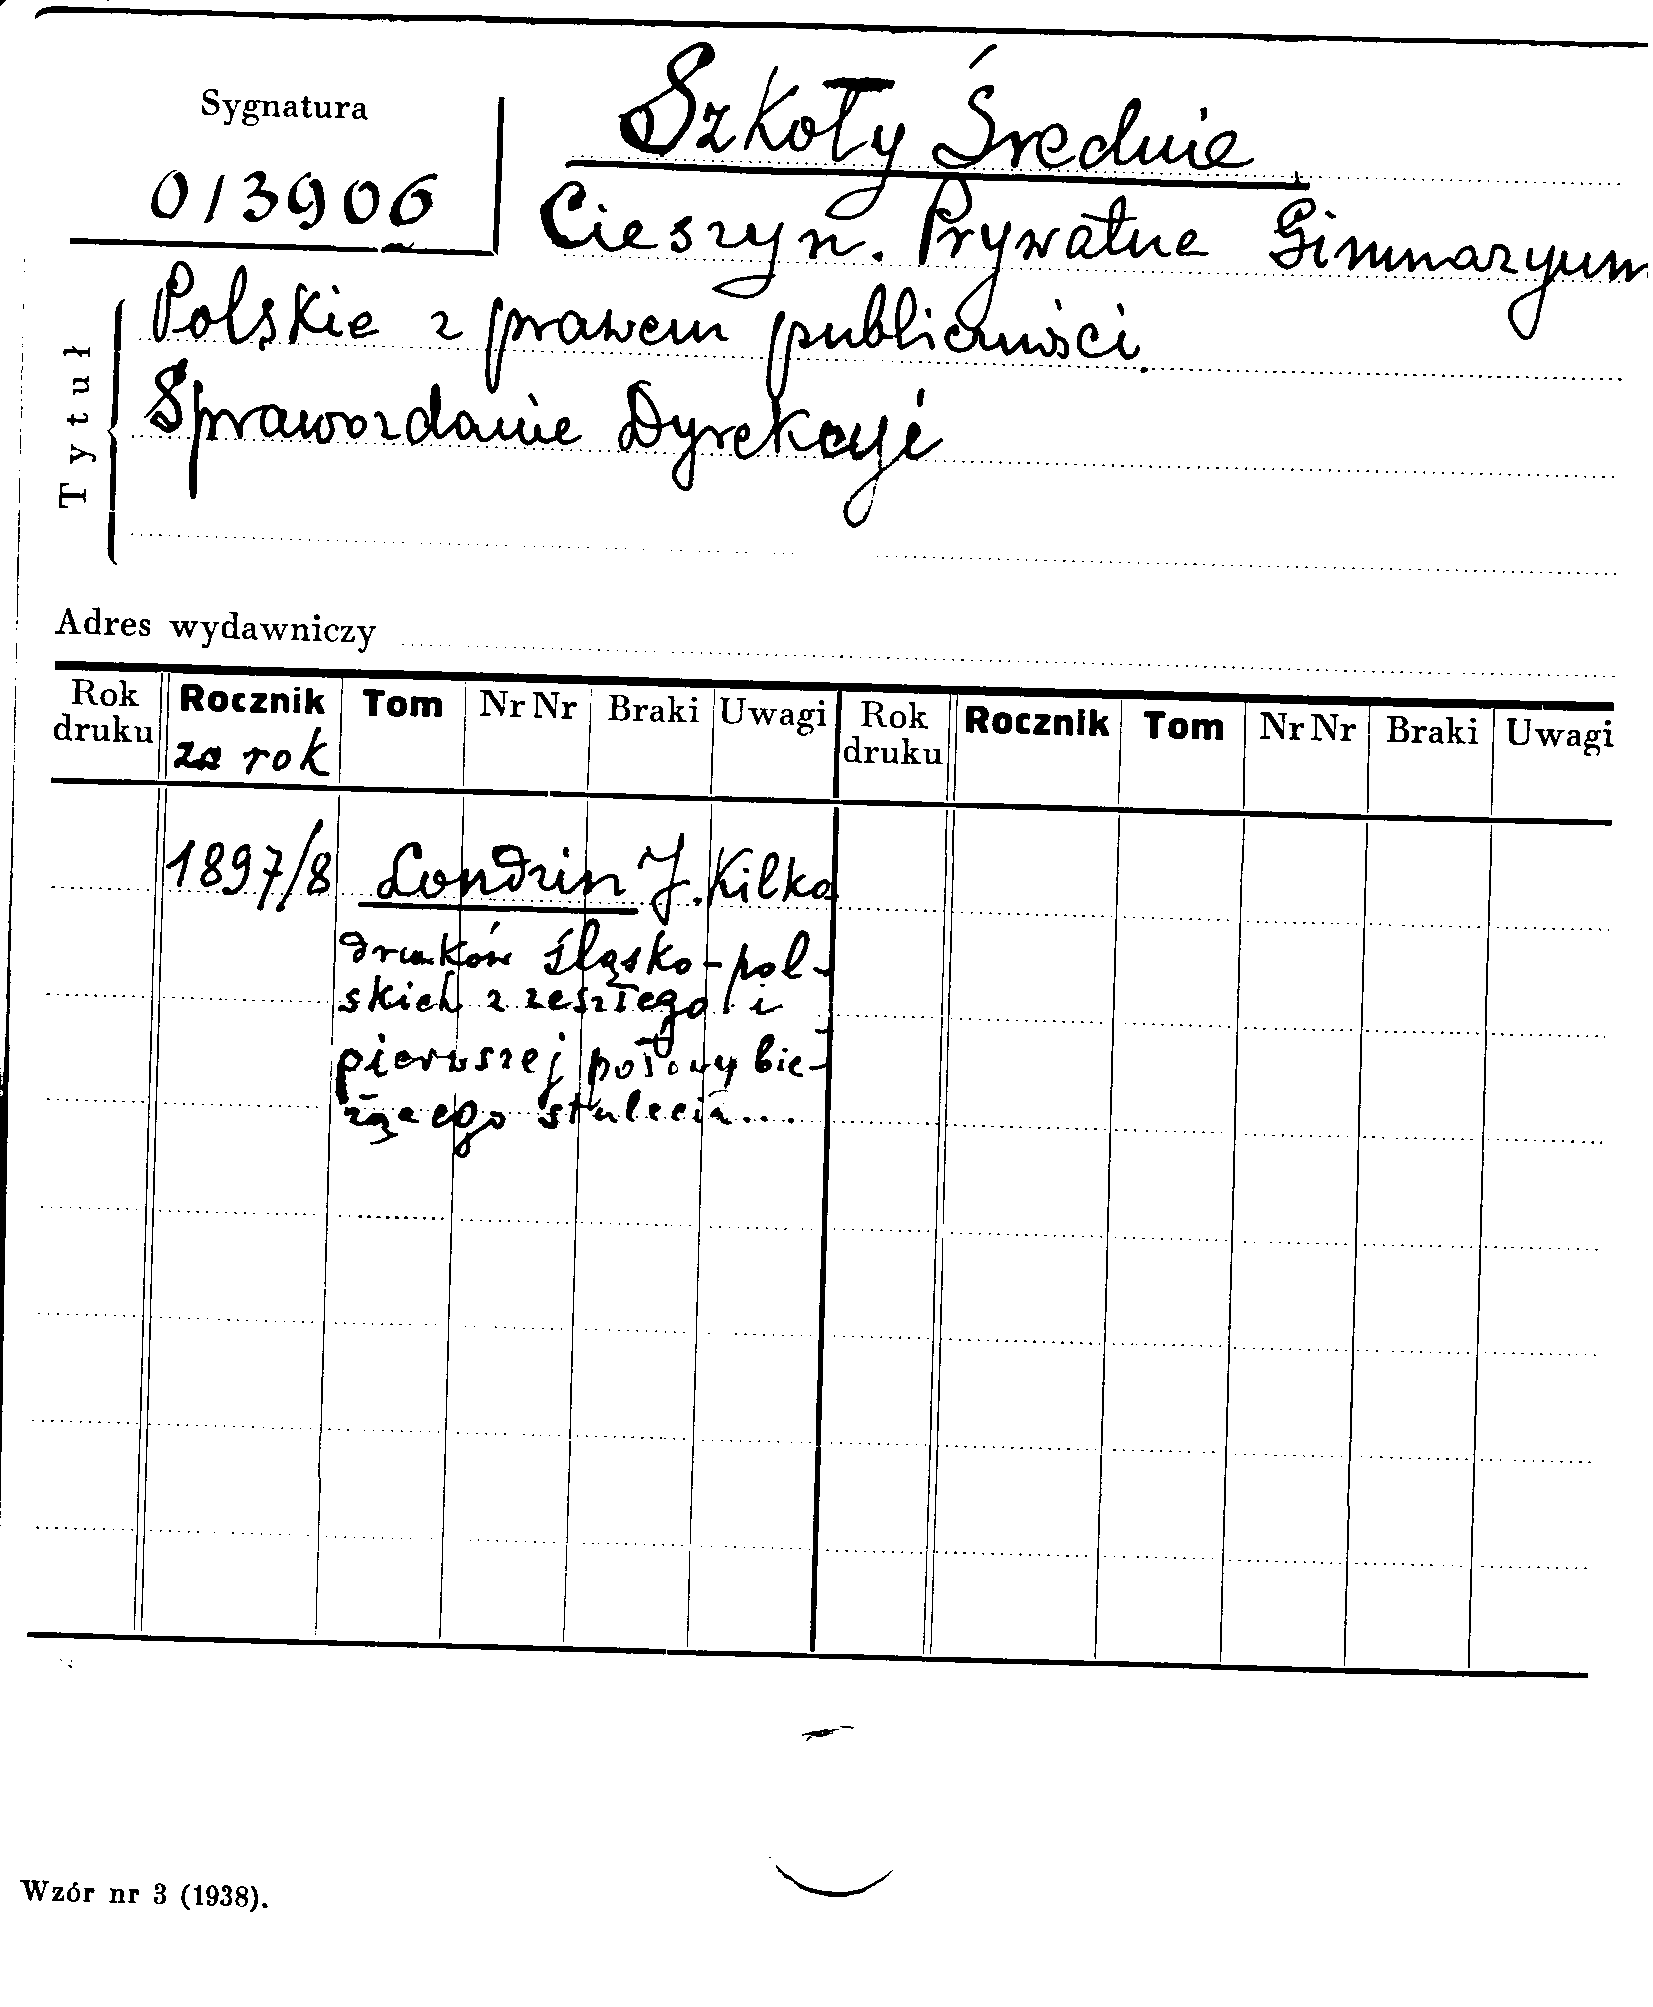 Sygnatura
013906
Szkoły Średnie
Cieszyn. Prywatne Gimnazyum
Polskie z prawem publiczności.
Sprawozdanie Dyrekcyi
Tytuł
Adres wydawniczy
Rok druku Rocznik Tom Nr Nr Braki Uwagi Rok druku Rocznik Tom Nr Nr Braki Uwagi
za rok
1897/8 Londzin J. Kilka
druków śląsko-pol-
skich z zeszłego i
pierwszej połowy bie-
żącego stulecia...
Wzór nr 3 (1938).